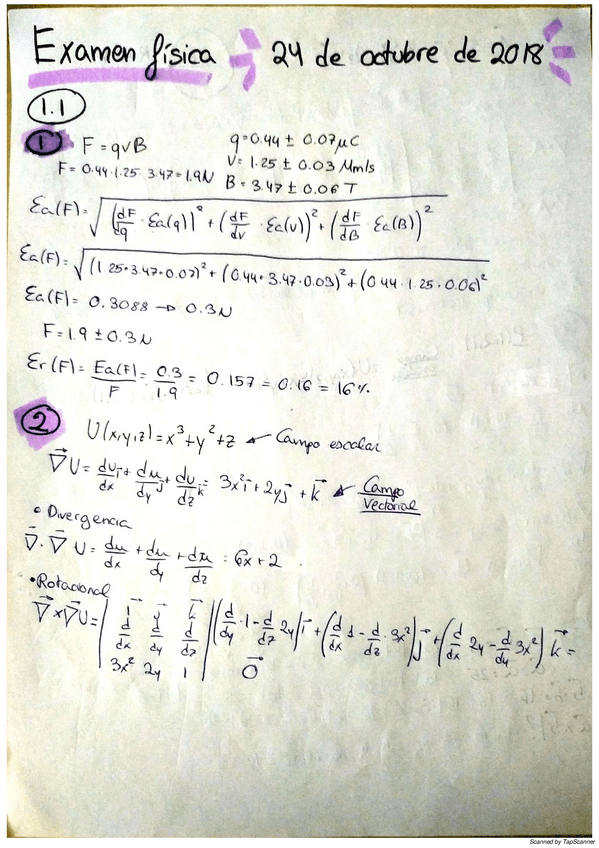 Examen física 24 de octubre de 2018
1.1
1 F = qvB q=0.44 ± 0.07 μC
F= 0.44·1.25·3.47=1.9N V= 1.25 ± 0.03 Mm/s
B = 3.47 ± 0.06 T
Ea(F)= √((dF/dq · Ea(q))² + (dF/dv · Ea(v))² + (dF/dB · Ea(B))²
Ea(F)= √((1.25·3.47·0.07)² + (0.44·3.47·0.03)² + (0.44·1.25·0.06)²
Ea(F)= 0.3088 → 0.3N
F= 1.9 ± 0.3N
Er(F)= Ea(F)/F = 0.3/1.9 = 0.157 = 0.16 = 16%
2
U(x,y,z)=x³+y²+z ← Campo escalar
∇⃗U = du/dx i⃗ + du/dy j⃗ + du/dz k⃗ = 3x²i⃗ + 2yj⃗ + k⃗ ← Campo Vectorial
• Divergencia
∇⃗·∇⃗U = du/dx + du/dy + du/dz = 6x+2
•Rotacional
∇⃗×∇⃗U = | i⃗ j⃗ k⃗ |
| d/dx d/dy d/dz | (d/dy·1 - d/dz 2y)i⃗ + (d/dx 1 - d/dz 3x²)j⃗ + (d/dx 2y - d/dy 3x²)k⃗ =
| 3x² 2y 1 | 0⃗
Scanned by TapScanner